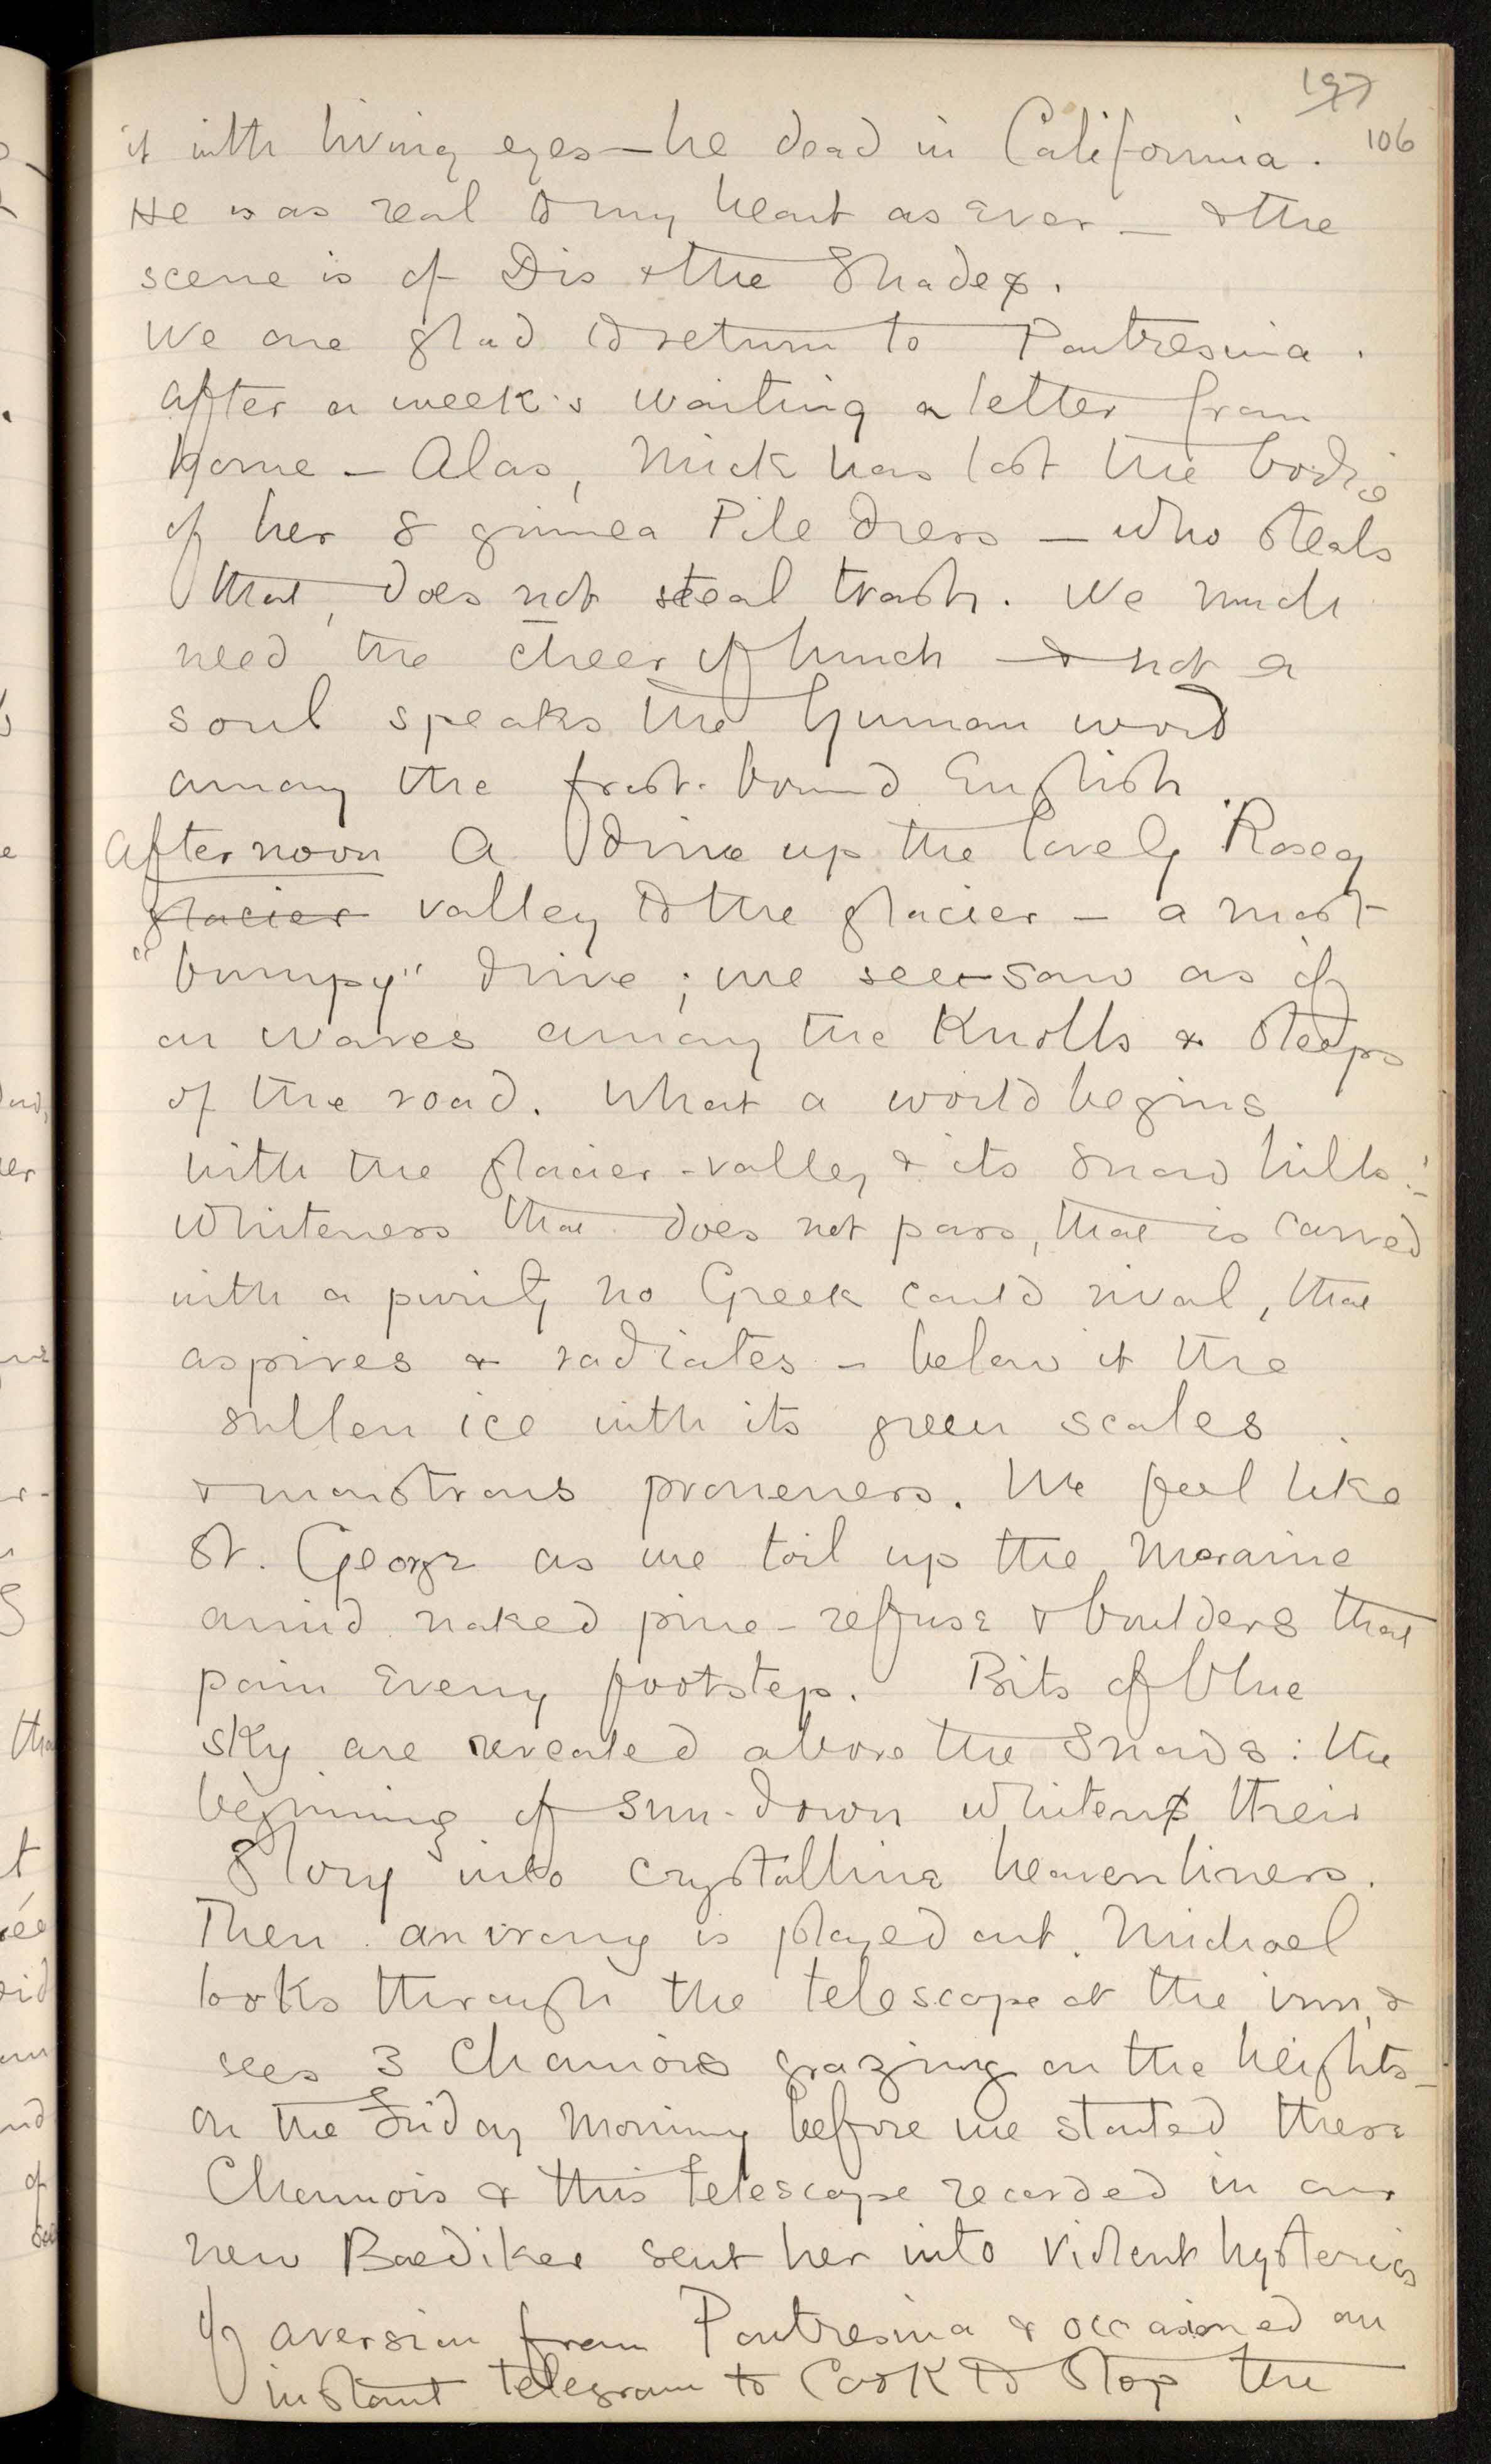 197
106
it with living eyes — he dead in California.
He is as real to my heart as ever — & the
scene is of Dis & the Shades.
We are glad to return to Pontresina.
After a week's waiting a letter from
home — Alas, Mick has lost the bodice
of her 8 guinea Pile dress — who steals
that, does not steal trash. We much
need the cheer of lunch — & not a
soul speaks the human word
among the frost-bound English.
Afternoon A drive up the lovely Roseg
glacier valley to the glacier — a most
"bumpy" drive; we see-saw as if
on waves among the Knolls & steeps
of the road. What a world begins
with the glacier-valley & its snow hills!—
Whiteness that does not pass, that is carved
with a purity no Greek could rival, that
aspires & radiates — below it the
sullen ice with its green scales
& monstrous proneness. We feel like
St. George as we toil up the Moraine
amid naked pine-refuse & boulders that
pain every footstep. Bits of blue
sky are revealed above the snows: the
beginning of sun-down whitens their
glory into crystalline heavenliness.
Then an irony is played out. Michael
looks through the telescope at the inn, &
sees 3 Chamois grazing on the heights —
On the Friday Morning before we started these
Chamois & this telescope recorded in our
new Baediker sent her into violent hysterics
of aversion from Pontresina & occasioned an
instant telegram to Cook to stop the